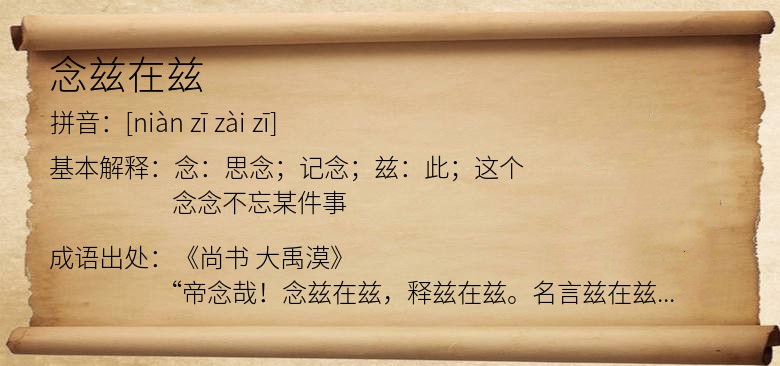 念兹在兹
拼音：[niàn zī zài zī]
基本解释：念：思念；记念；兹：此；这个
念念不忘某件事
成语出处：《尚书 大禹漠》
“帝念哉！念兹在兹，释兹在兹。名言兹在兹...